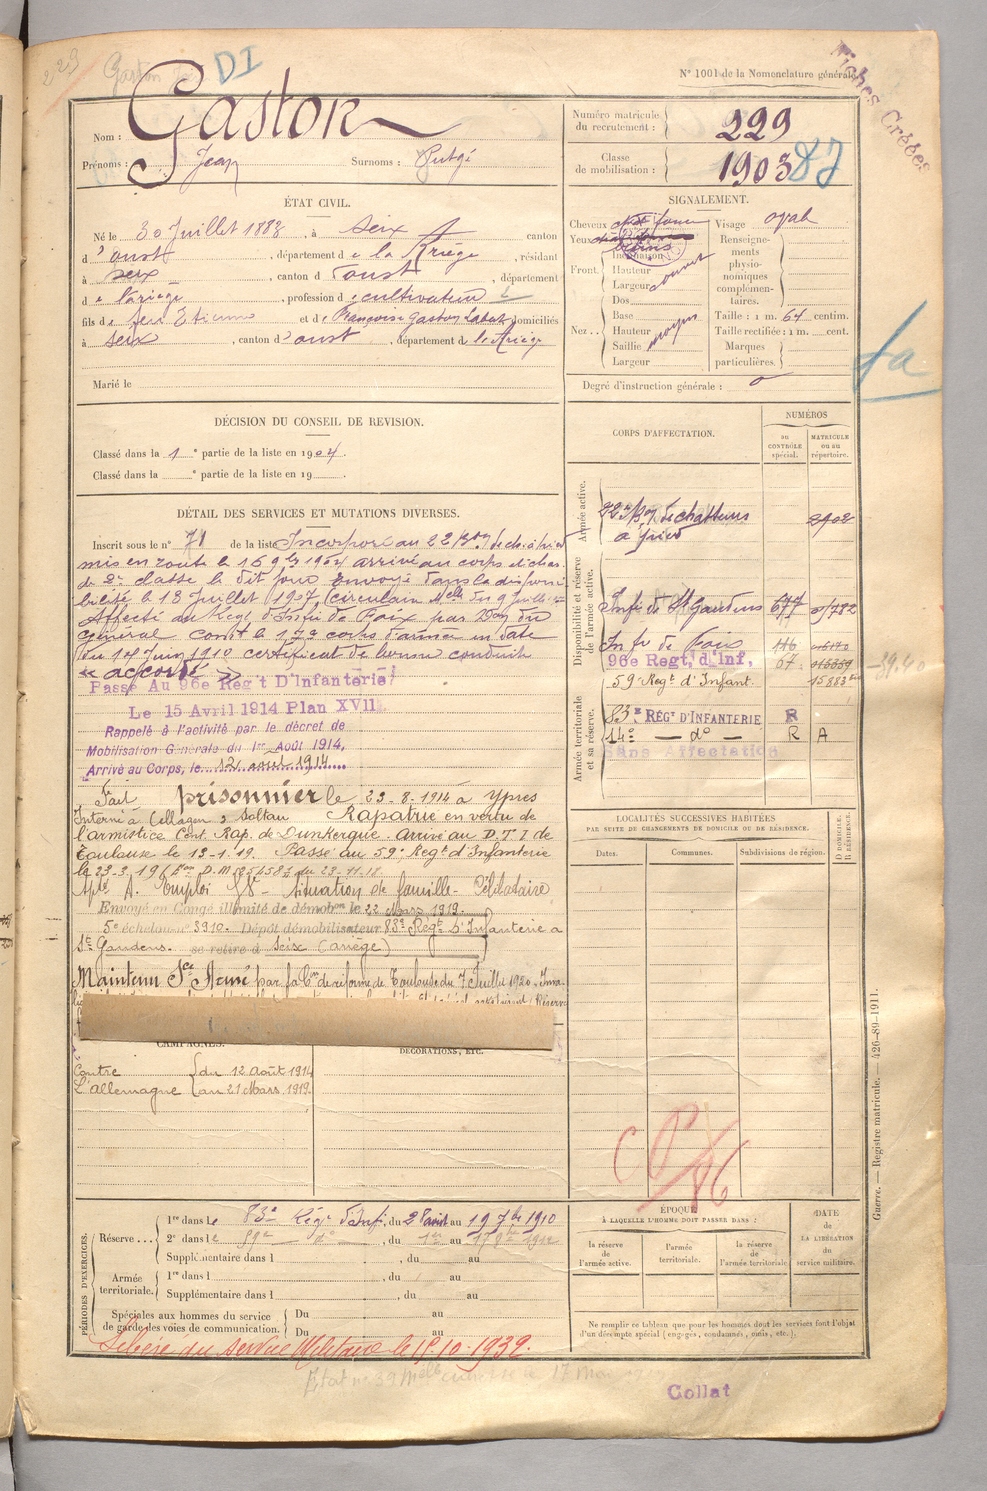 229
Gaston
DI
N° 1001 de la Nomenclature générale
Fiches Créées
Nom : Gaston
Prénoms : Jean Surnoms :
Numéro matricule du recrutement : 229
Classe de mobilisation : 1903
ÉTAT CIVIL.
Né le 30 Juillet 1883, à Seix canton
d'oust, département de la Riège, résidant
à Seix, canton d'oust, département
de l'ariège, profession de cultivateur
fils de feu Etienne et de Françoise Gaston Labat domiciliés
à Seix, canton d'oust, département de l'Ariège
Marié le
SIGNALEMENT.
Cheveux
Yeux
Front. Inclinaison
Hauteur
Largeur
Dos
Nez. Base
Hauteur moyen
Saillie
Largeur
Visage oval
Renseignements physionomiques complémentaires.
Taille : 1 m. 64 centim.
Taille rectifiée : 1 m. cent.
Marques particulières.
Degré d'instruction générale : 0
fa
DÉCISION DU CONSEIL DE REVISION.
Classé dans la 1e partie de la liste en 1904.
Classé dans la e partie de la liste en 19
DÉTAIL DES SERVICES ET MUTATIONS DIVERSES.
Inscrit sous le n° 71 de la liste Incorporé au 22
mis en route le 16 9bre 1904 arrivé au corps et chas.
de 2e classe le dit jour Envoyé dans la disponi-
bilité le 13 Juillet 1907 (circulaire Melle du 9 Juillet
Affecté au Régt d'Infie de Foix par Don du
général Comt le 17e corps d'armée en date
du 14 Juin 1910 certificat de bonne conduite
« accordé »
Passé Au 96e Reg't D'Infanterie
Le 15 Avril 1914 Plan XVII
Rappelé à l'activité par le décret de
Mobilisation Générale du 1er Août 1914,
Arrivé au Corps, le 12 août 1914
Fait prisonnier le 23-8-1914 à Ypres
Interné à Cellagen 2 Soltau Rapatrié en vertu de
l'armistice Cent. Rap. de Dunkerque. Arrivé au D.T.I de
Toulouse le 13-1-19. Passé au 59e Régt d'Infanterie
Situation de famille - Célibataire
Envoyé en Congé illimité de démobon le 22 Mars 1919.
5e échelon n° 3910. Dépôt démobilisateur 83e Régt D'Infanterie à
St Gaudens. se retire à Seix (ariège)
Maintenu Sce Armé par la Con de réforme de Toulouse du 7 Juillet 1920
CORPS D'AFFECTATION.
NUMÉROS
au CONTRÔLE spécial.
MATRICULE ou au répertoire.
Armée active.
à pied
2902
Disponibilité et réserve de l'armée active.
Infie de St Gaudens
Inf ie de Foix
96e Regt, d'Inf,
59e Régt d'Infant.
39.40
Armée territoriale et sa réserve.
83e RÉGt D'INFANTERIE R
14e — do — R A
Sans Affectation
LOCALITÉS SUCCESSIVES HABITÉES
PAR SUITE DE CHANGEMENTS DE DOMICILE OU DE RÉSIDENCE.
Dates. Communes. Subdivisions de région. D DOMICILE. R RÉSIDENCE.
CAMPAGNES.
DÉCORATIONS, ETC.
Contre du 12 Août 1914
L'Allemagne au 21 Mars 1919.
PÉRIODES D'EXERCICES.
Réserve... 1re dans le 83e Régt d'Infie, du au 19 7bre 1910
2e dans le 59e do, du 1er au 1912
Supplémentaire dans l, du au
Armée territoriale. 1re dans l, du au
Supplémentaire dans l, du au
Spéciales aux hommes du service de garde des voies de communication. Du au
Du au
Libéré du service Militaire le 15-10-1932.
ÉPOQUE
À LAQUELLE L'HOMME DOIT PASSER DANS :
la réserve de l'armée active.
l'armée territoriale.
la réserve de l'armée territoriale
DATE de LA LIBÉRATION du service militaire.
Ne remplir ce tableau que pour les hommes dont les services font l'objet
d'un décompte spécial (engagés, condamnés, omis, etc.).
Guerre. — Registre matricule. — 426-89-1911.
Collat